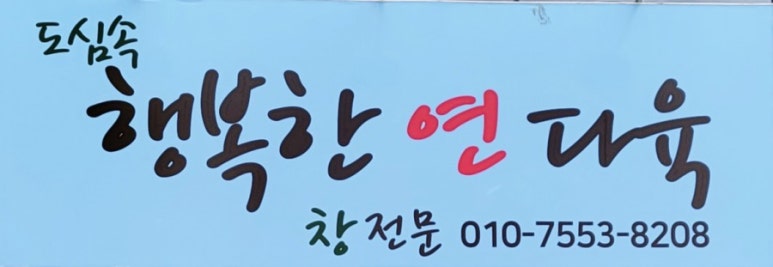 도심속
행복한 연 다육
창 전문 010-7553-8208